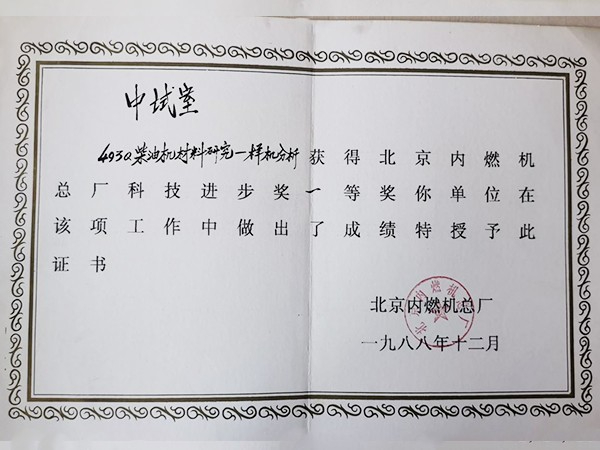 中试室
493Q柴油机材料研究—样机分析获得北京内燃机
总厂科技进步奖一等奖你单位在
该项工作中做出了成绩特授予此
证书
北京内燃机总厂
一九八八年十二月
北京内燃机总厂